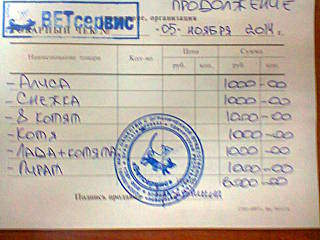 ПРОДОЛЖЕНИЕ
ВЕТсервис
организация
ТОВАРНЫЙ ЧЕК №
-05- НОЯБРЯ 2014 г.
Наименование товара Кол-во Цена Сумма
руб. коп. руб. коп.
- АЛИСА 1000-00
- СНЕЖКА 1000-00
- 8 КОТЯТ 1000-00
- КОТЯ 1000-00
- ЛАДА+КОТЯТА 1000-00
- ПИРАТ 1000-00
6000-00
Подпись продавца